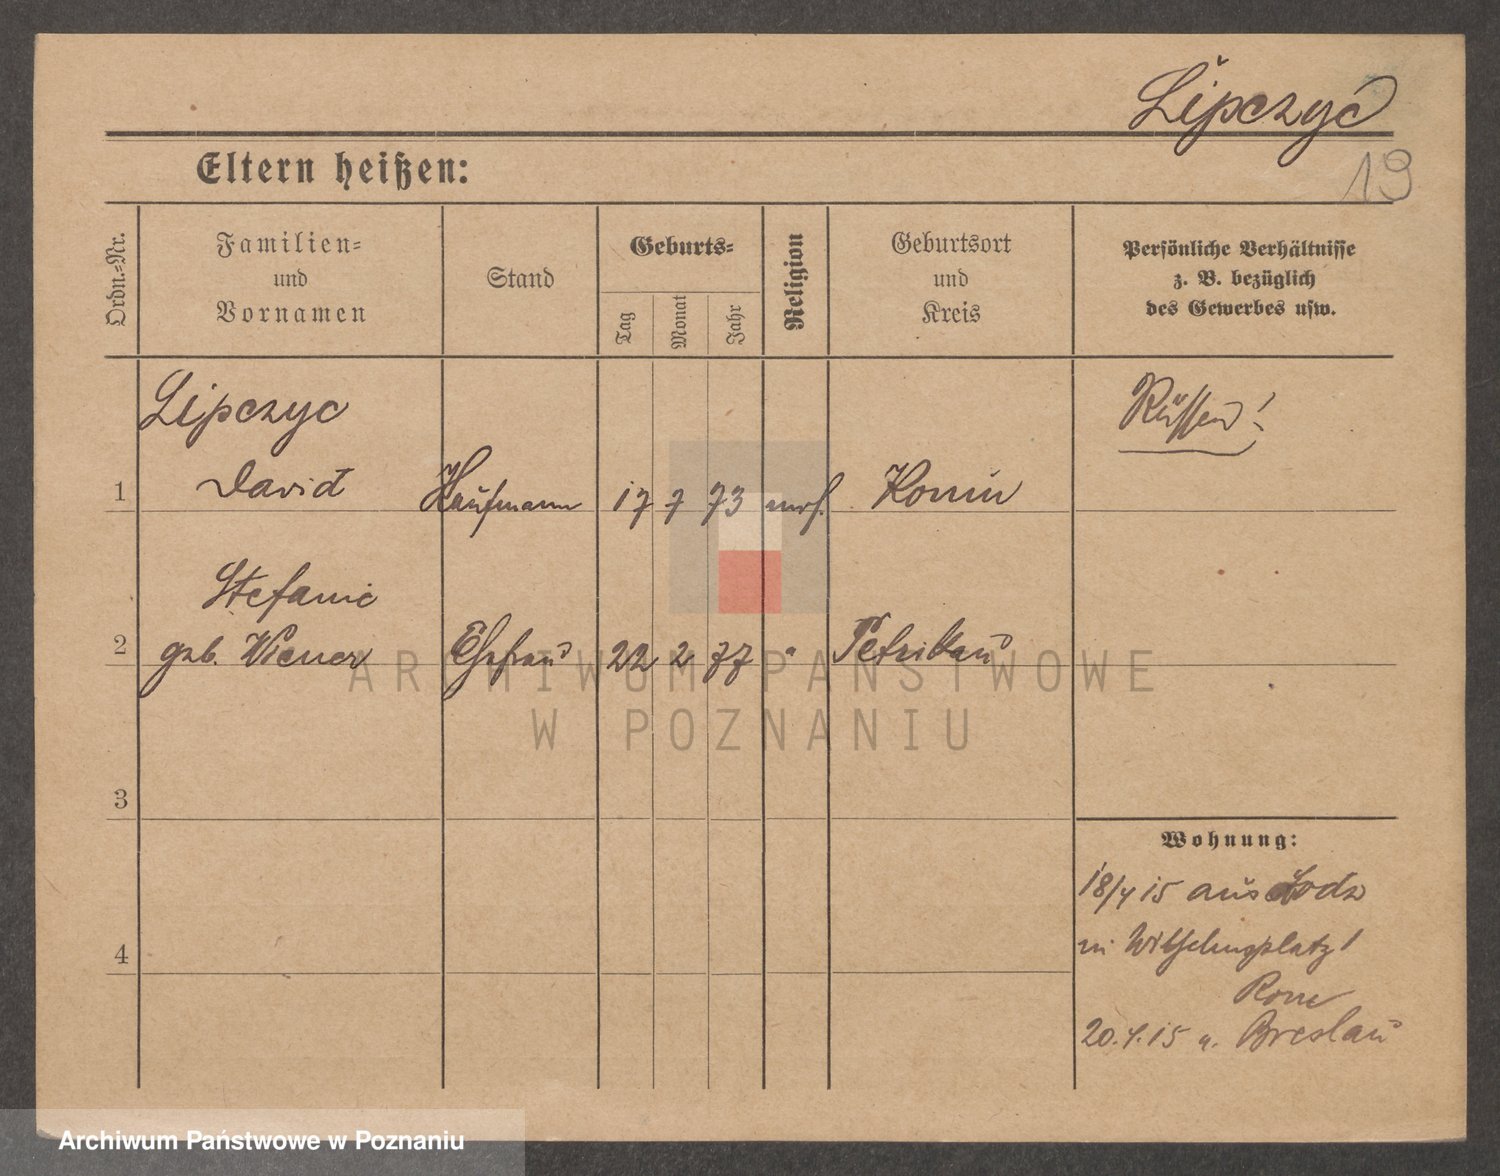 Lipczyc
19
Eltern heißen:
Ordn.-Nr.
Familien-
und
Vornamen
Stand
Geburts-
Tag
Monat
Jahr
Religion
Geburtsort
und
Kreis
Persönliche Verhältnisse
z. B. bezüglich
des Gewerbes usw.
Lipczyc
Russen!
1 David Kaufmann 17 7 73 mos. Konin
Stefanie
2 geb. Wiener Ehefrau 22 2 77 " Petrikau
3
4
Wohnung:
18/4 15 aus Lodz
Wilhelmsplatz 1
Rom
20.4.15 n. Breslau
ARCHIWUM PAŃSTWOWE
W POZNANIU
Archiwum Państwowe w Poznaniu